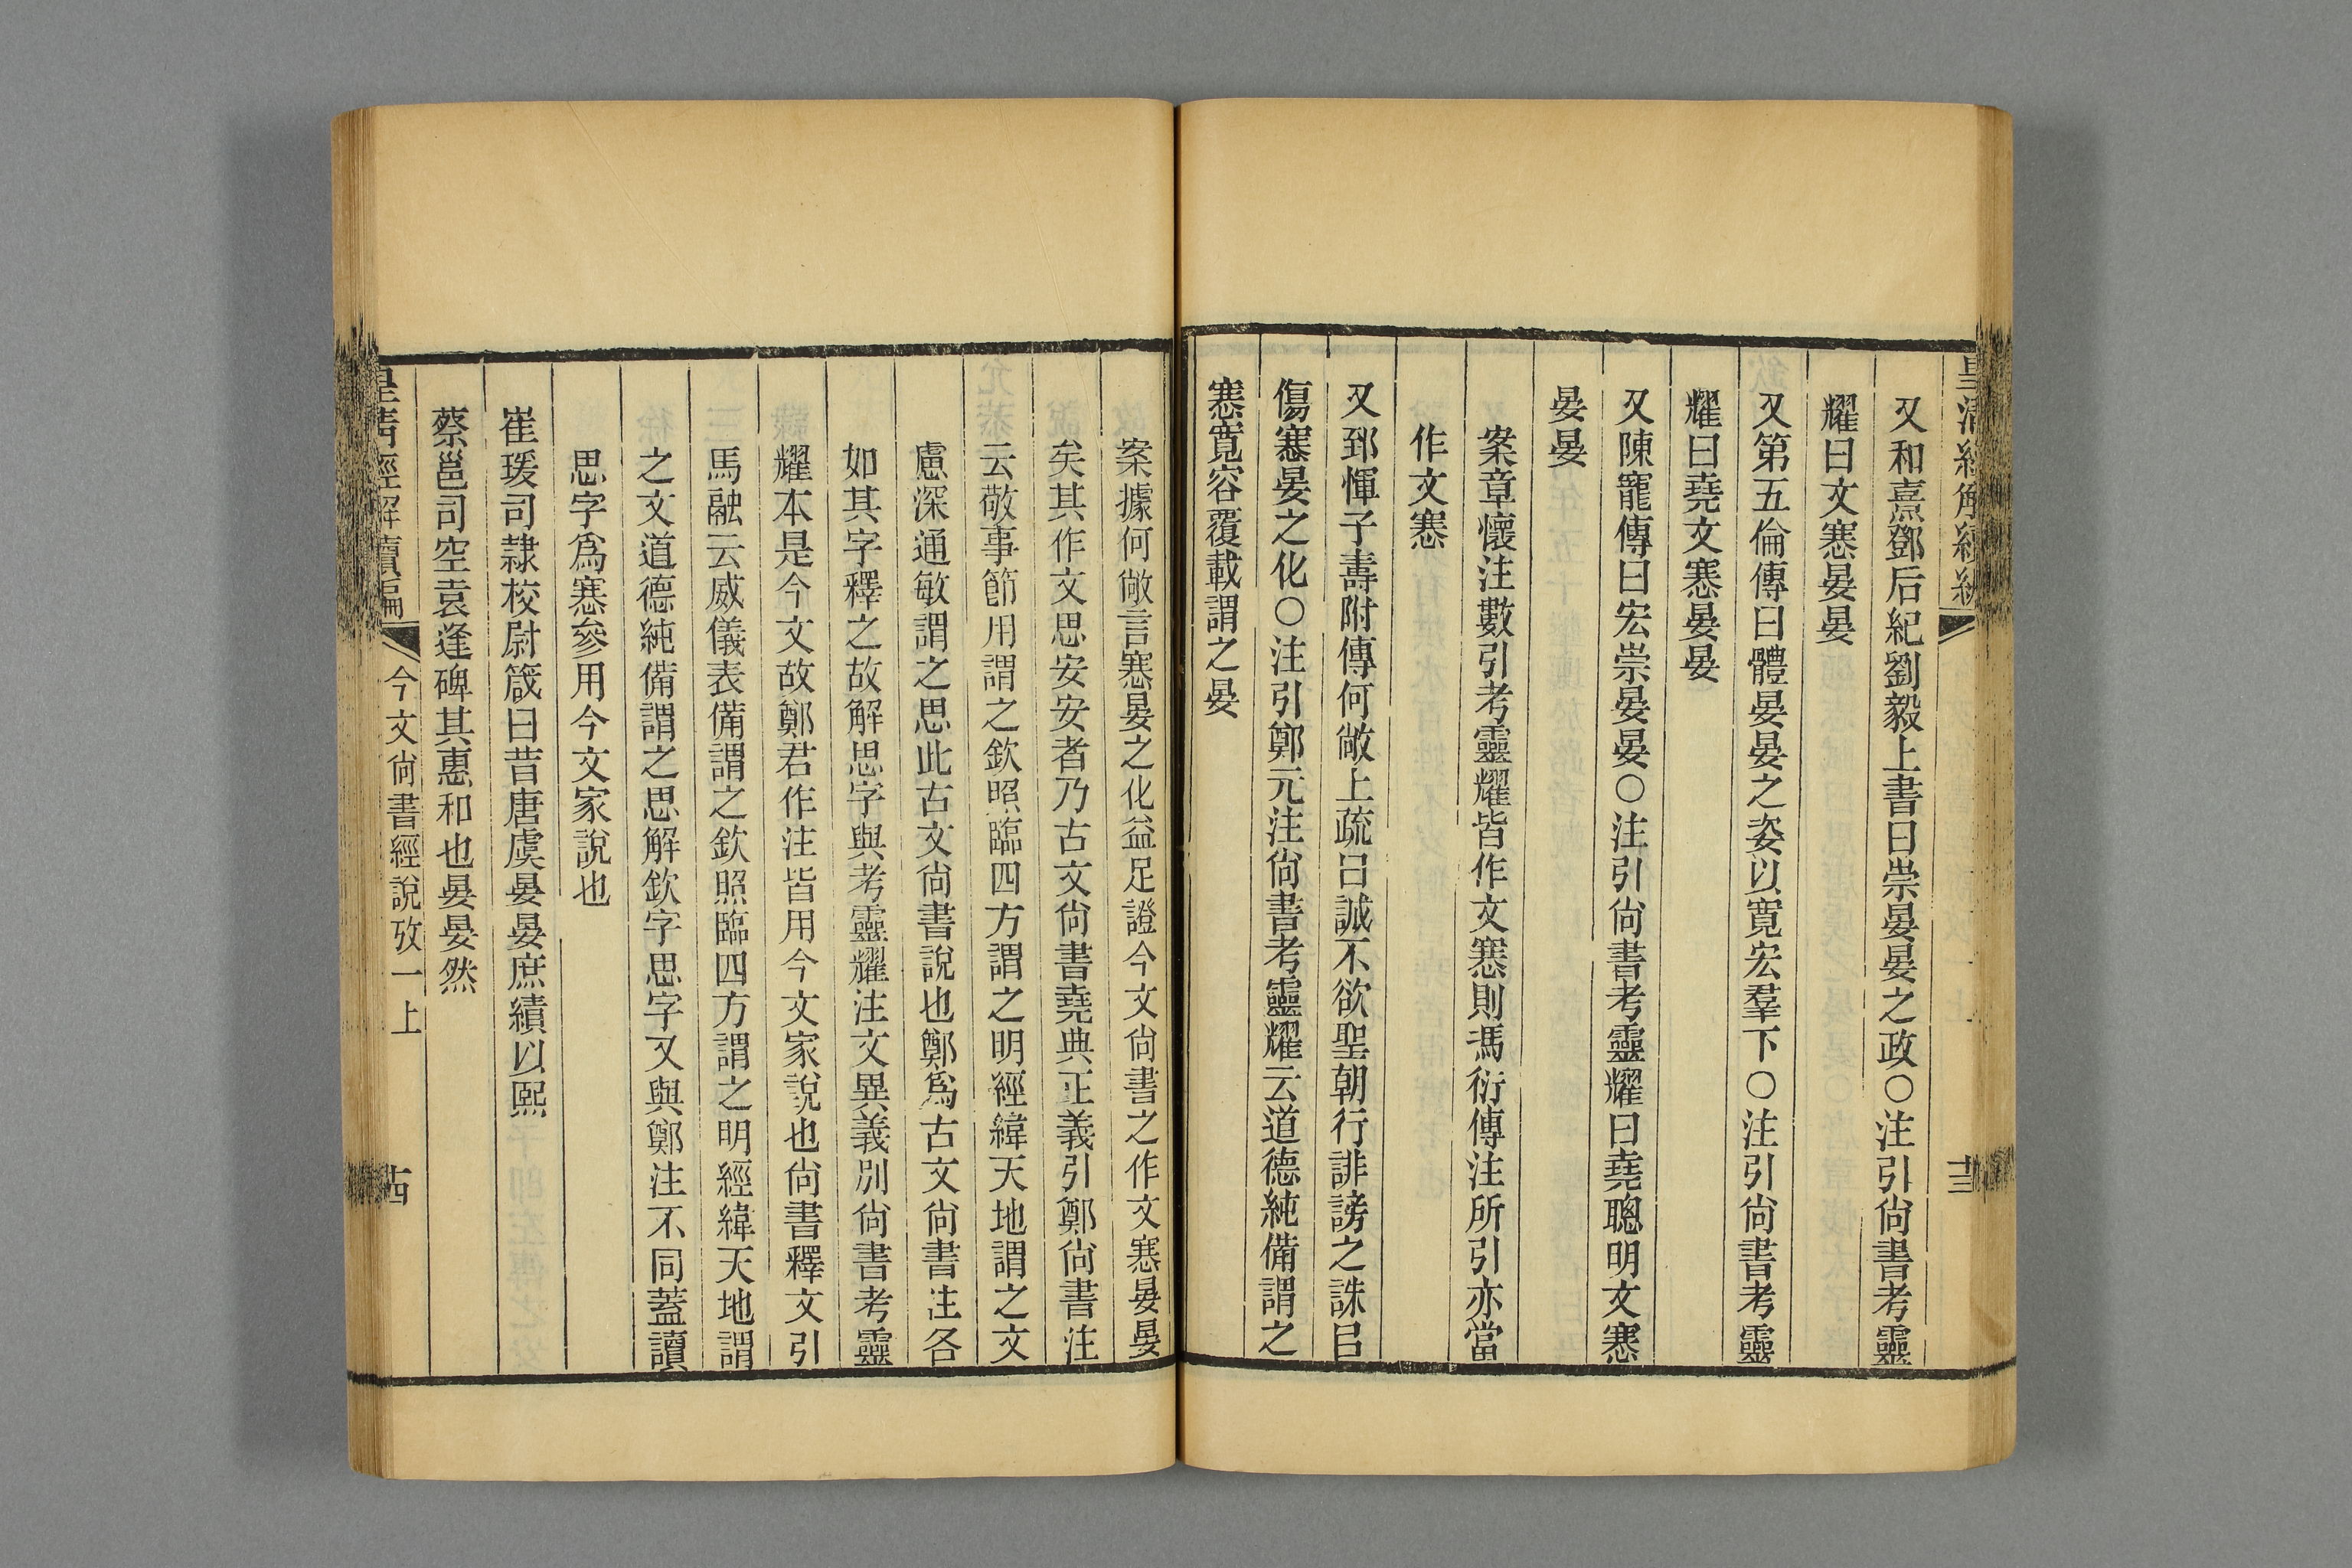 皇清經解續編
十三
又和熹鄧后紀劉毅上書曰崇晏晏之政○注引尙書考靈
耀曰文塞晏晏
又第五倫傳曰體晏晏之姿以寬宏羣下○注引尙書考靈
耀曰堯文塞晏晏
又陳寵傳曰宏崇晏晏○注引尙書考靈耀曰堯聰明文塞
晏晏
案章懷注數引考靈耀皆作文塞則馮衍傳注所引亦當
作文塞
又郅惲子壽附傳何敞上疏㠯誠不欲聖朝行誹謗之誅㠯
傷塞晏之化○注引鄭元注尙書考靈耀云道德純備謂之
塞寬容覆載謂之晏
案據何敞言塞晏之化益足證今文尙書之作文塞晏晏
矣其作文思安安者乃古文尙書堯典正義引鄭尙書注
云敬事節用謂之欽照臨四方謂之明經緯天地謂之文
慮深通敏謂之思此古文尙書說也鄭爲古文尙書注各
如其字釋之故解思字與考靈耀注文異義別尙書考靈
耀本是今文故鄭君作注皆用今文家說也尙書釋文引
馬融云威儀表備謂之欽照臨四方謂之明經緯天地謂
之文道德純備謂之思解欽字思字又與鄭注不同蓋讀
思字爲塞參用今文家說也
崔瑗司隸校尉箴曰昔唐虞晏晏庶績以熙
蔡邕司空袁逢碑其惠和也晏晏然
皇清經解續編
今文尙書經說攷一上
十四